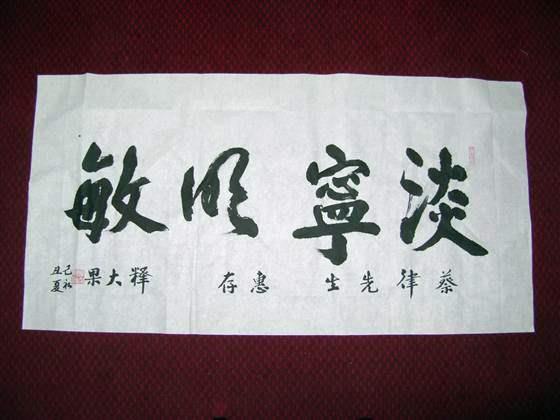 淡寧明敏
蔡律先生惠存
釋大果
己丑
初夏